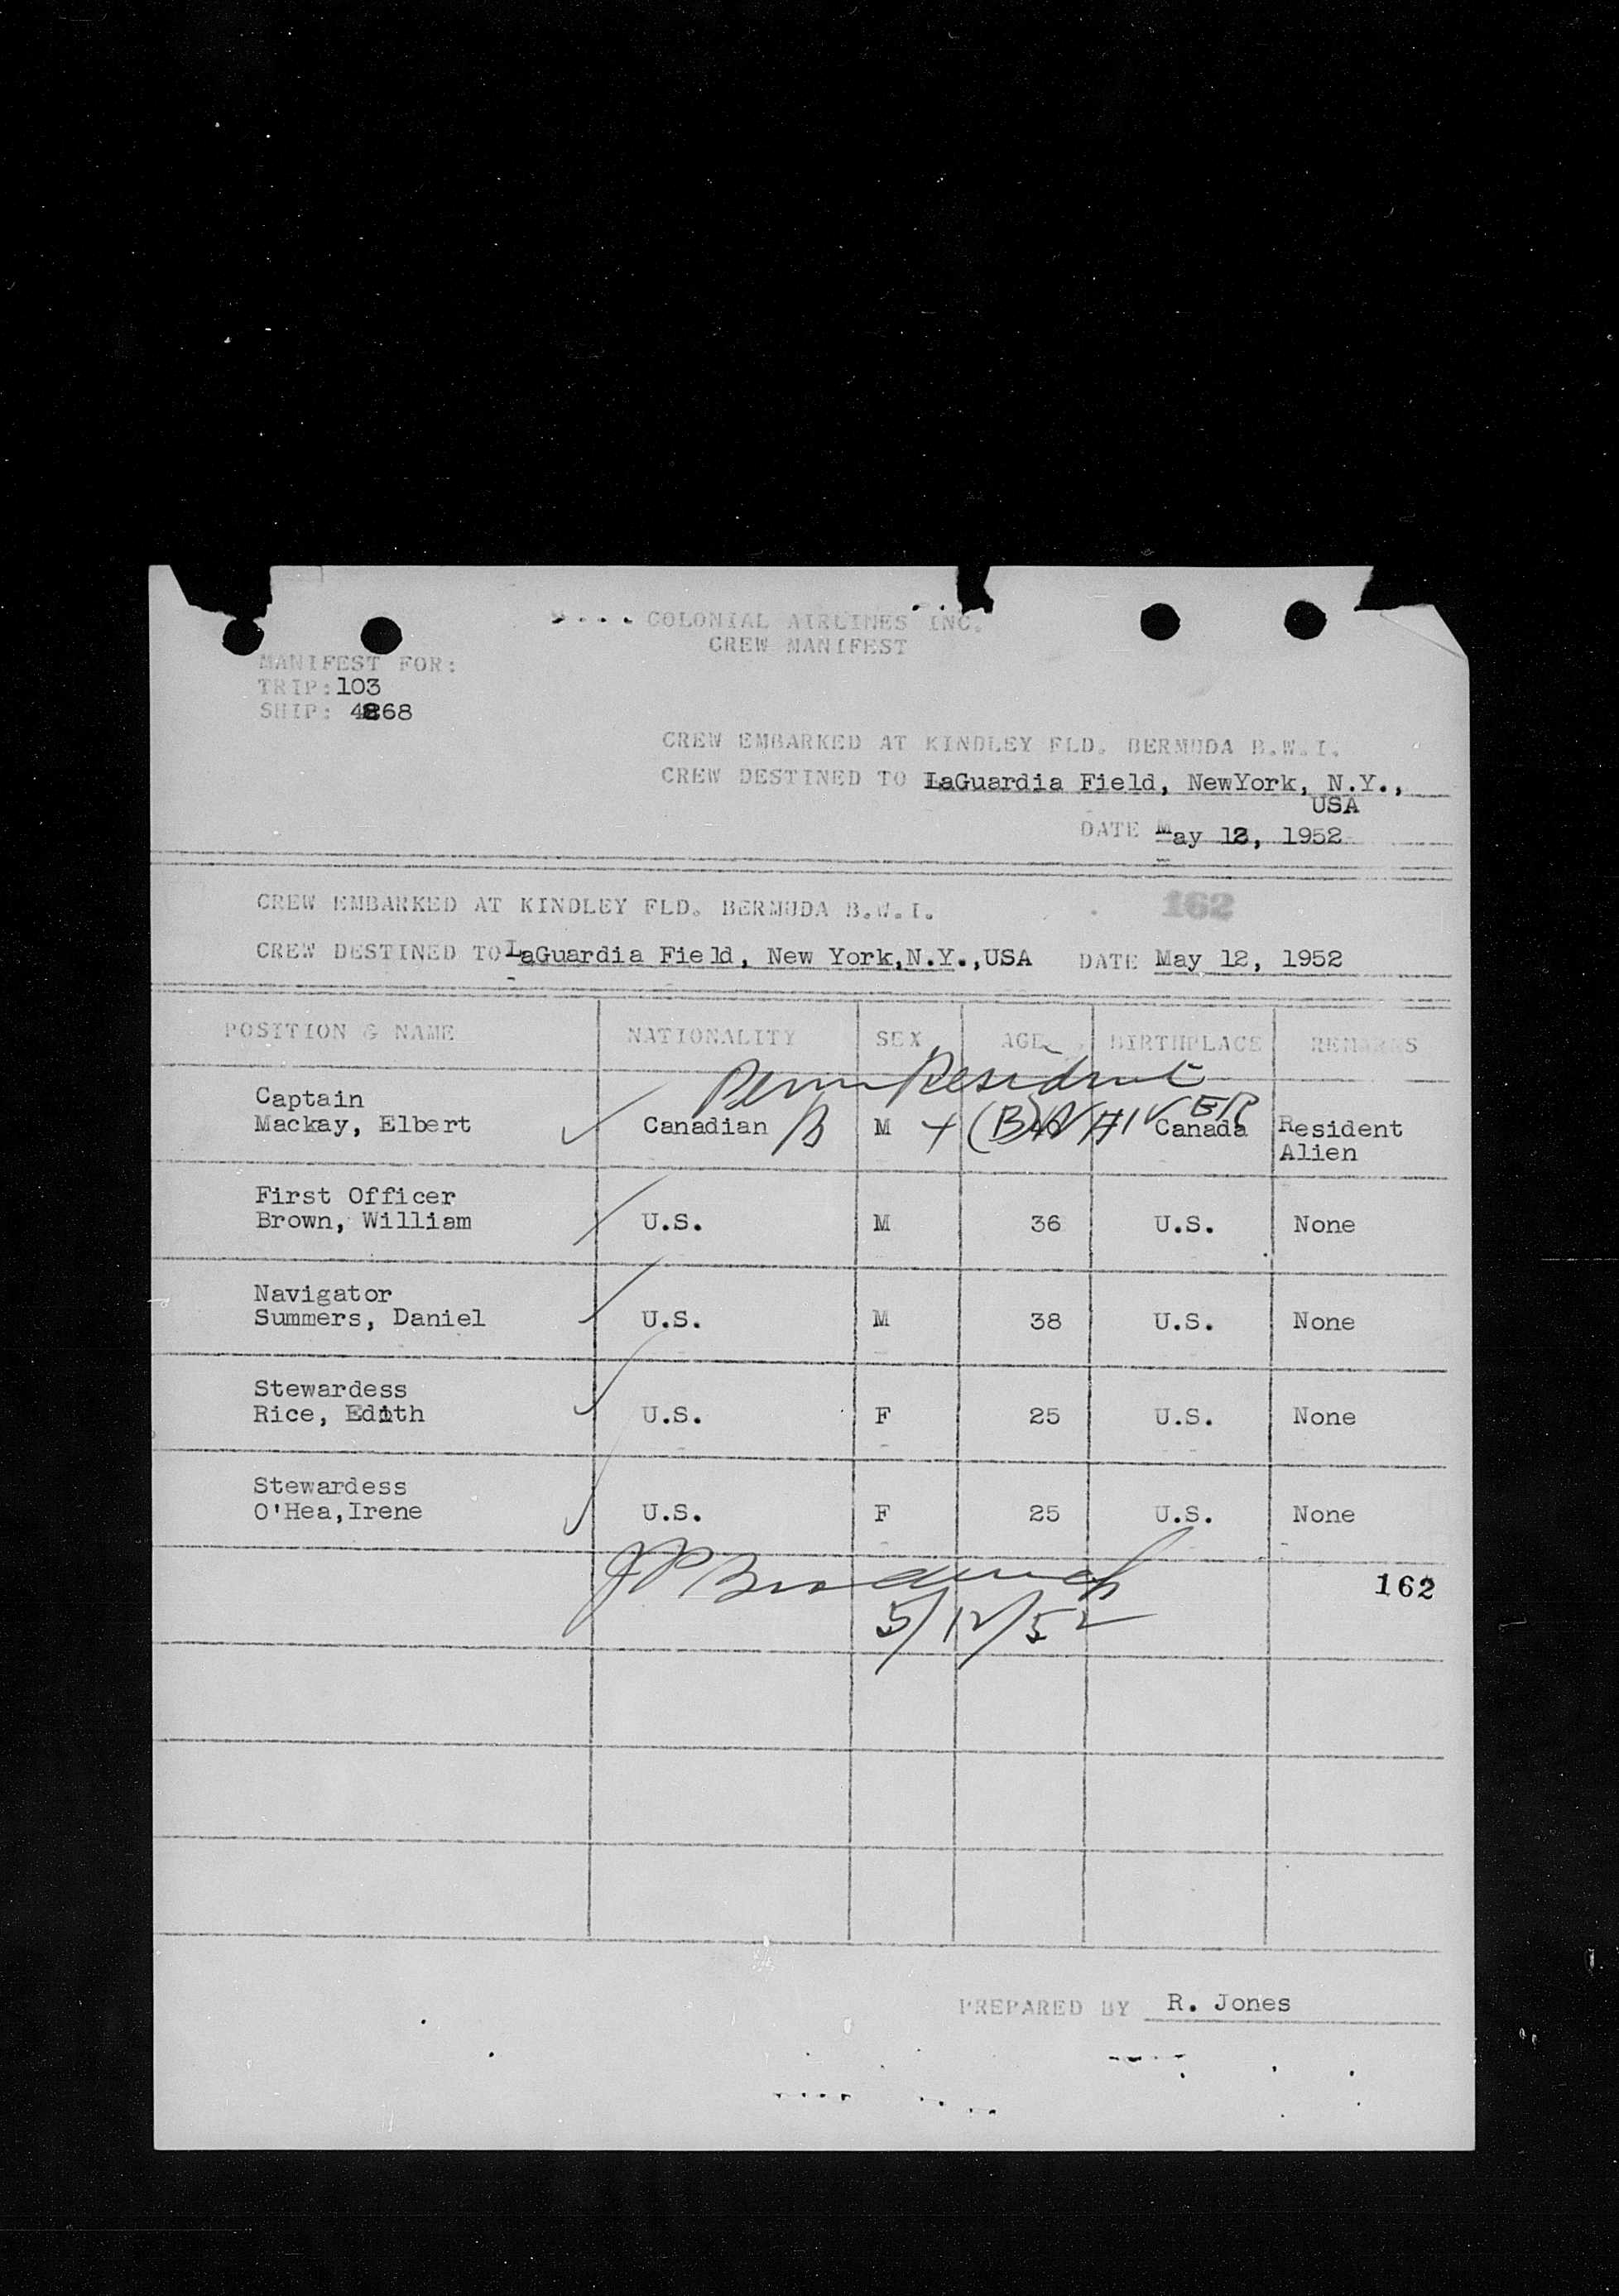 COLONIAL AIRLINES INC.
CREW MANIFEST
MANIFEST FOR:
TRIP: 103
SHIP: 4868
CREW EMBARKED AT KINDLEY FLD. BERMUDA B.W.I.
CREW DESTINED TO LaGuardia Field, NewYork, N.Y.,
USA
DATE May 12, 1952
162
CREW EMBARKED AT KINDLEY FLD. BERMUDA B.W.I.
CREW DESTINED TO LaGuardia Field, New York,N.Y.,USA DATE May 12, 1952
POSITION & NAME NATIONALITY SEX AGE BIRTHPLACE REMARKS
Perm Resident
Captain
Mackay, Elbert Canadian M Canada Resident
Alien
First Officer
Brown, William U.S. M 36 U.S. None
Navigator
Summers, Daniel U.S. M 38 U.S. None
Stewardess
Rice, Edith U.S. F 25 U.S. None
Stewardess
O'Hea,Irene U.S. F 25 U.S. None
162
5/12/52
PREPARED BY R. Jones